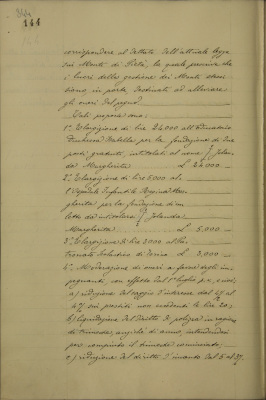 344
144
corrispondere al dettato dell'attuale legge
sui Monti di Pietà, la quale prescrive che
i lucri della gestione dei Monti stessi
siano, in parte destinati ad alleviare
gli oneri del pegno.
Tali proposte sono:
1° Elargizione di lire 24,000 all'Educatorio
Duchessa Isabella per la fondazione di due
posti gratuiti, intitolati al nome "Jolan
da Margherita L. 24.000 —
2° Elargizione di lire 5000 al
l'Ospedale Infantile Regina Mar
gherita per la fondazione di un
letto da intitolarsi "Jolanda
Margherita L. 5,000 —
3° Elargizione di lire 3000 al
di Torino L. 3,000 —
4° Moderazione di oneri a favore degli im
pegnanti, con effetto dal 1° luglio p.v., e cioè:
a) riduzione del saggio d'interesse dal 5% al
4% sui prestiti non eccedenti le lire 20;
b) liquidazione del diritto di polizza in ragione
di trimestre, anzichè di anno, intendendosi
però compiuto il trimestre cominciato;
c) riduzione del diritto d'incanto dal 5 al 3%.